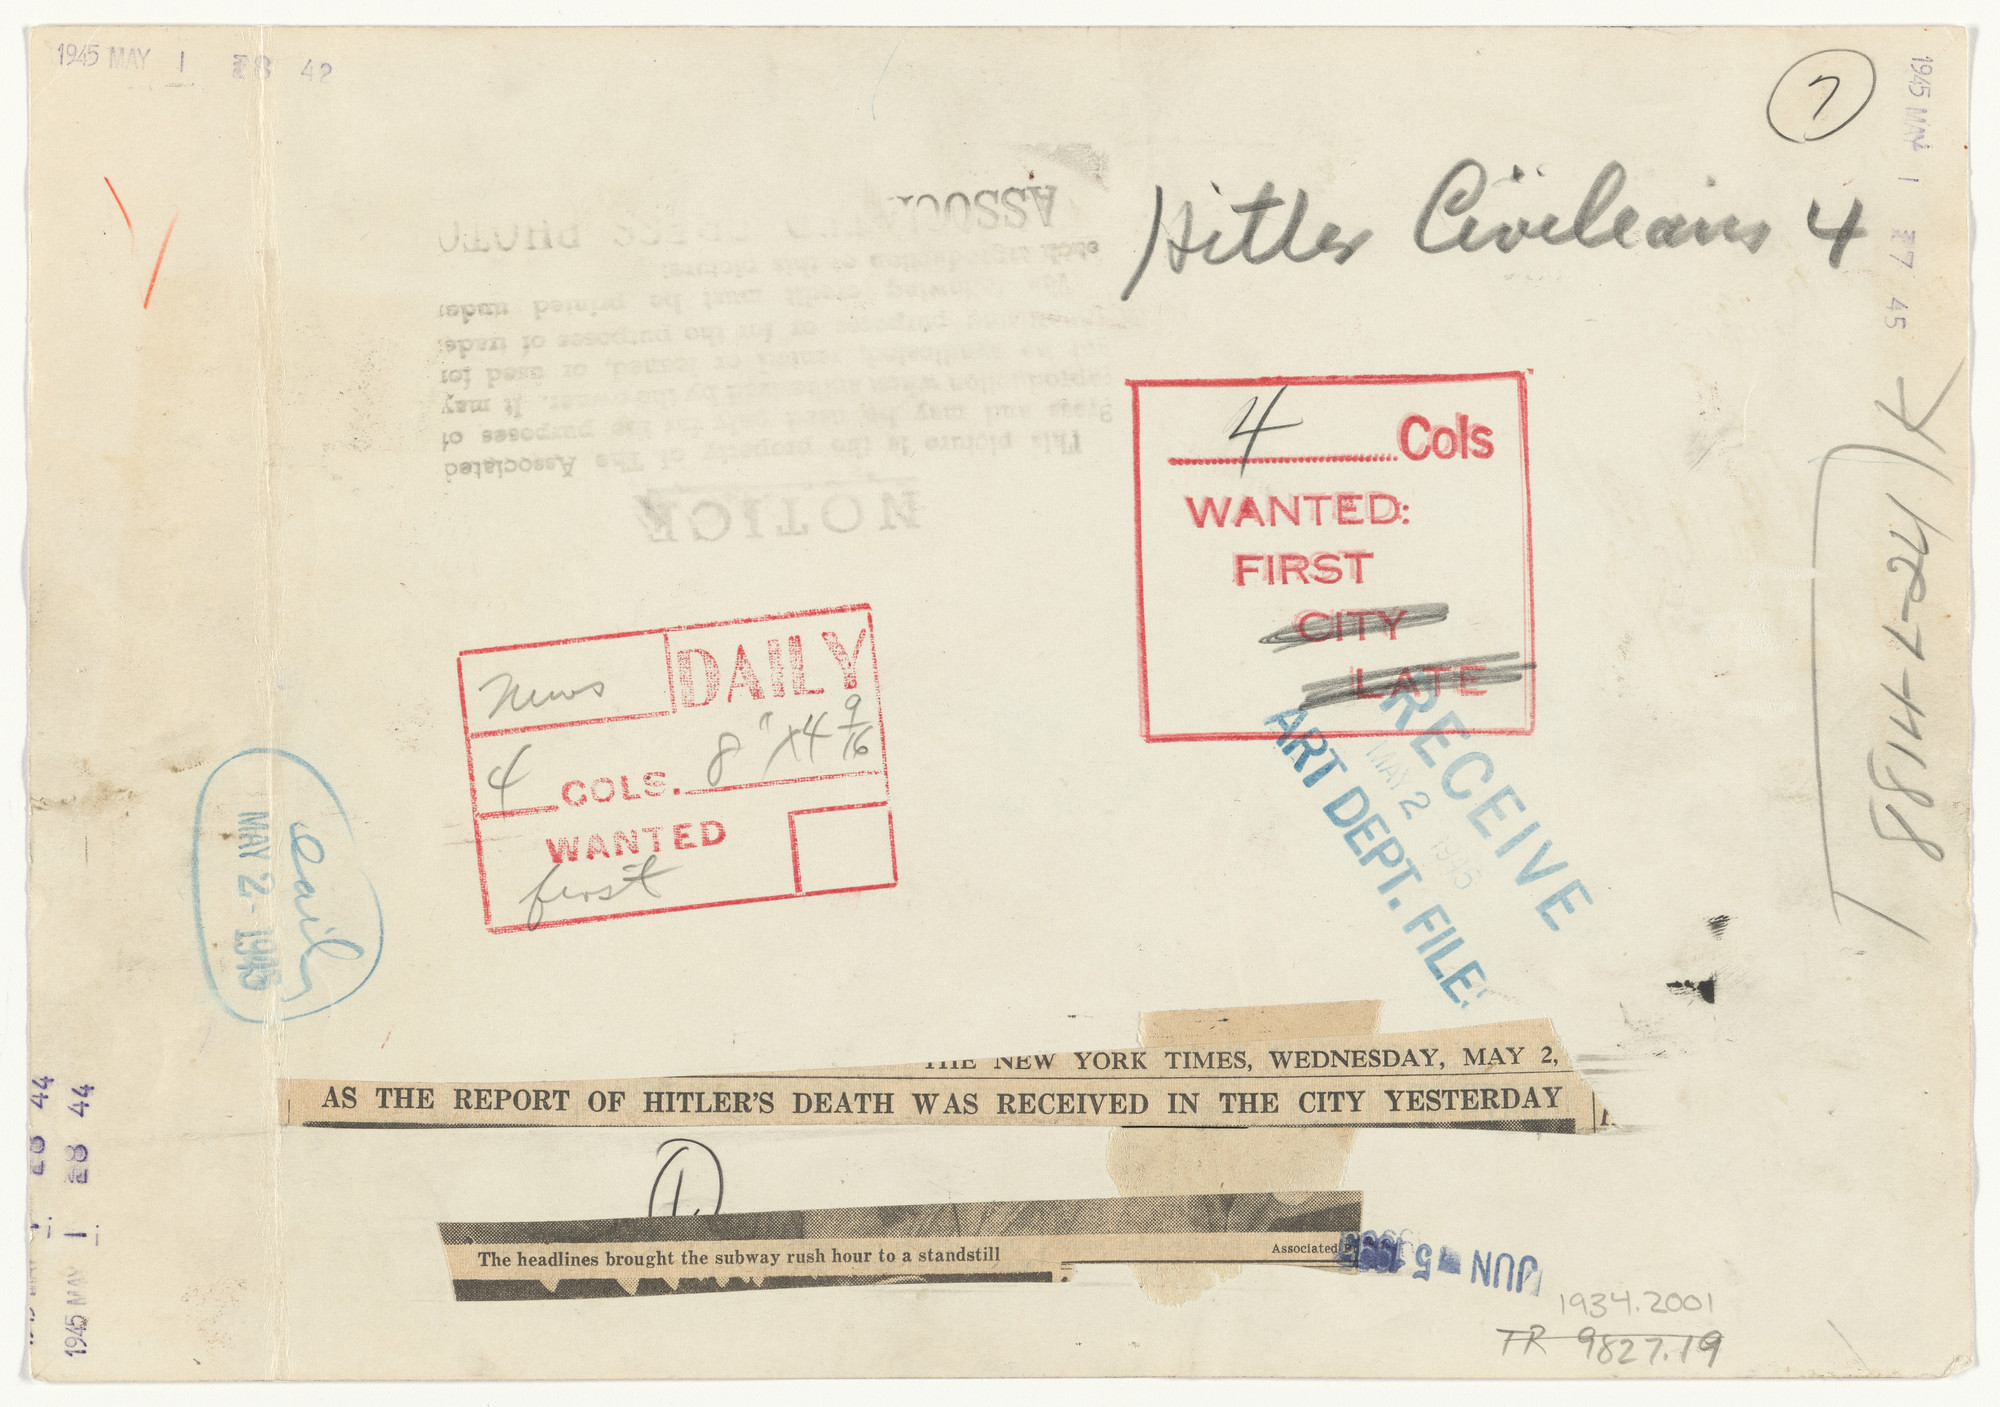 1945 MAY 1 28 42
7
1945 MAY 1 27 45
Hitler Civileans 4
ASSOCIATED PRESS PHOTO
each reproduction of this picture:
The following credit must be printed under
advertising purposes or for the purposes of trade:
not be syndicated, rented or loaned, or used for
reproduction when authorized by the owner. It may
Press and may be used only for the purposes of
This picture is the property of The Associated
NOTICE
4 Cols
WANTED:
FIRST
CITY
LATE
K
8814-1-24
News DAILY
4 COLS. 8" x 4 9/16
WANTED
first
RECEIVE
MAY 2 1945
ART DEPT. FILE
early
MAY 2 - 1945
THE NEW YORK TIMES, WEDNESDAY, MAY 2,
AS THE REPORT OF HITLER'S DEATH WAS RECEIVED IN THE CITY YESTERDAY
28 44
1945 MAY 1 28 44
1
The headlines brought the subway rush hour to a standstill
Associated
JUN - 5
1934.2001
TR 9827.19